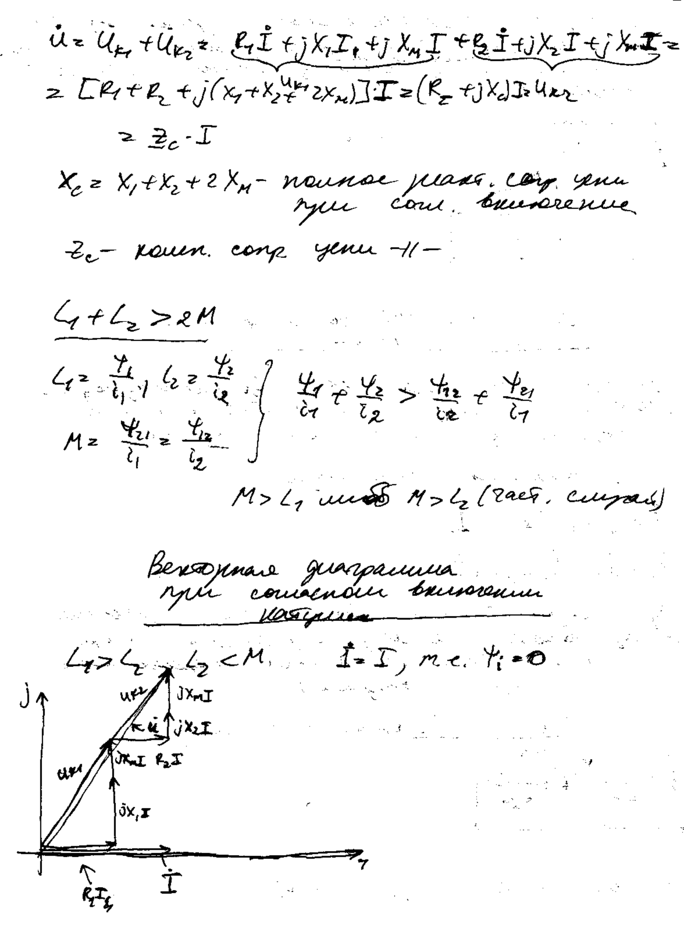 U̇ = U̇к1 + U̇к2 = R1İ + jX1I1 + jXмI + R2İ + jX2I + jXмI =
Uк1 Uк2
= [R1 + R2 + j(X1 + X2 + 2Xм)]·I = (RΣ + jXc)I =
= Zc · I
Xc = X1 + X2 + 2Xм - полное реакт. сопр. цепи
при согл. включение
Zc - комп. сопр цепи -//-
L1 + L2 > 2M
L1 = ψ1/i1, L2 = ψ2/i2
M = ψ21/i1 = ψ12/i2
ψ1/i1 + ψ2/i2 > ψ12/i2 + ψ21/i1
M > L1 либо M > L2 (част. случай)
Векторная диаграмма
при согласном включении
катушек
L1 > L2 L2 < M. İ = I, т.е. ψi = 0
j
Uк2 jXмI
U̇ jX2I
jXмI R2I
Uк1
jX1I
İ